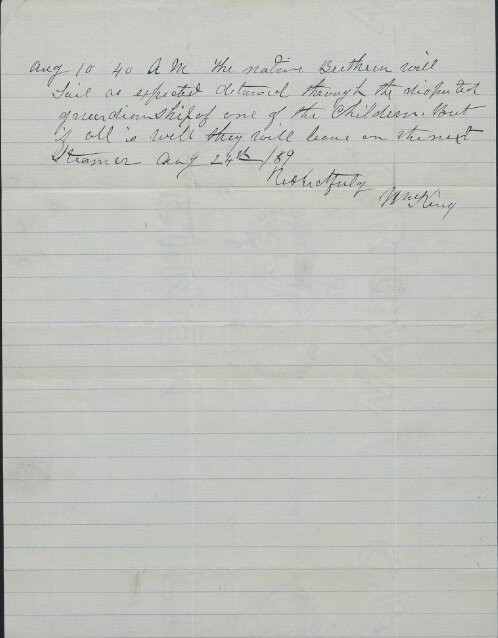 Aug 10 40 A M The native Brethren will
Sail as expected detained through the disputed
guardianship of one of the Children. But
if all is well they will leave on the next
Steamer Aug 24th /89
Respectfully
Wm King